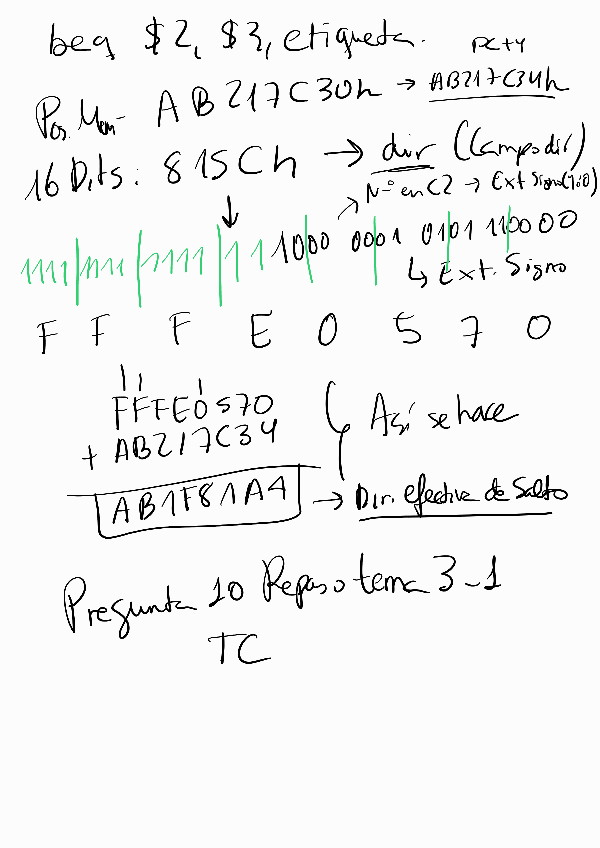 beq $2, $3, etiqueta.
PC+4
Pos. Mem- AB217C30h → AB217C34h
16 Bits: 815Ch → dir (Campo dir)
Nº en C2 → Ext Signo(1ó0)
1111 1111 1111 111 1000 0001 0101 110000
↳ Ext. Signo
F F F E 0 5 7 0
11 1
FFFE0570
+ AB217C34
Así se hace
AB1F81A4 → Dir. efectiva de Salto
Pregunta 10 Repaso tema 3-1
TC